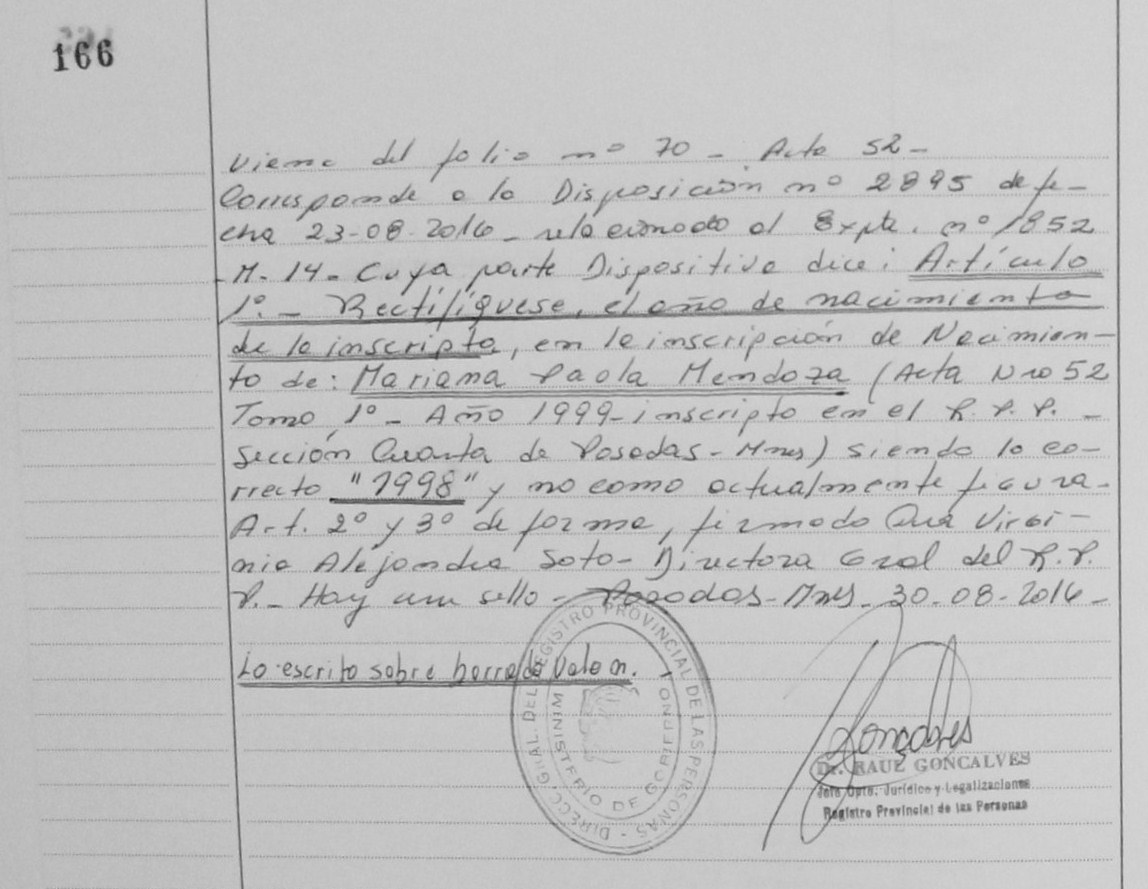 166
Viene del folio nº 70 - Acta 52 -
Corresponde a la Disposición nº 2895 de fe-
cha 23-08-2016 - relacionado al Expte. nº 1852
M-14- Cuya parte Dispositiva dice: Artículo
1º. - Rectifíquese, el año de nacimiento
de la inscripta, en la inscripción de Nacimien-
to de: Mariana Paola Mendoza (Acta Nro 52
Tomo 1º - Año 1999 - inscripta en el R. P. P. -
Sección Cuarta de Posadas - Mnes) siendo lo co-
rrecto "1998" y no como actualmente figura.
Art. 2º y 3º de forma, firmado Virgi-
nia Alejandra Soto - Directora Gral del R. P.
P. - Hay un sello - Posadas - Mnes - 30-08-2016 -
Lo escrito sobre borrado Valen.
DIRECC. GRAL. DEL REGISTRO PROVINCIAL DE LAS PERSONAS -
MINISTERIO DE GOBIERNO
Goncalves
Dr. RAUL GONCALVES
Jefe Dpto. Jurídico y Legalizaciones
Registro Provincial de las Personas